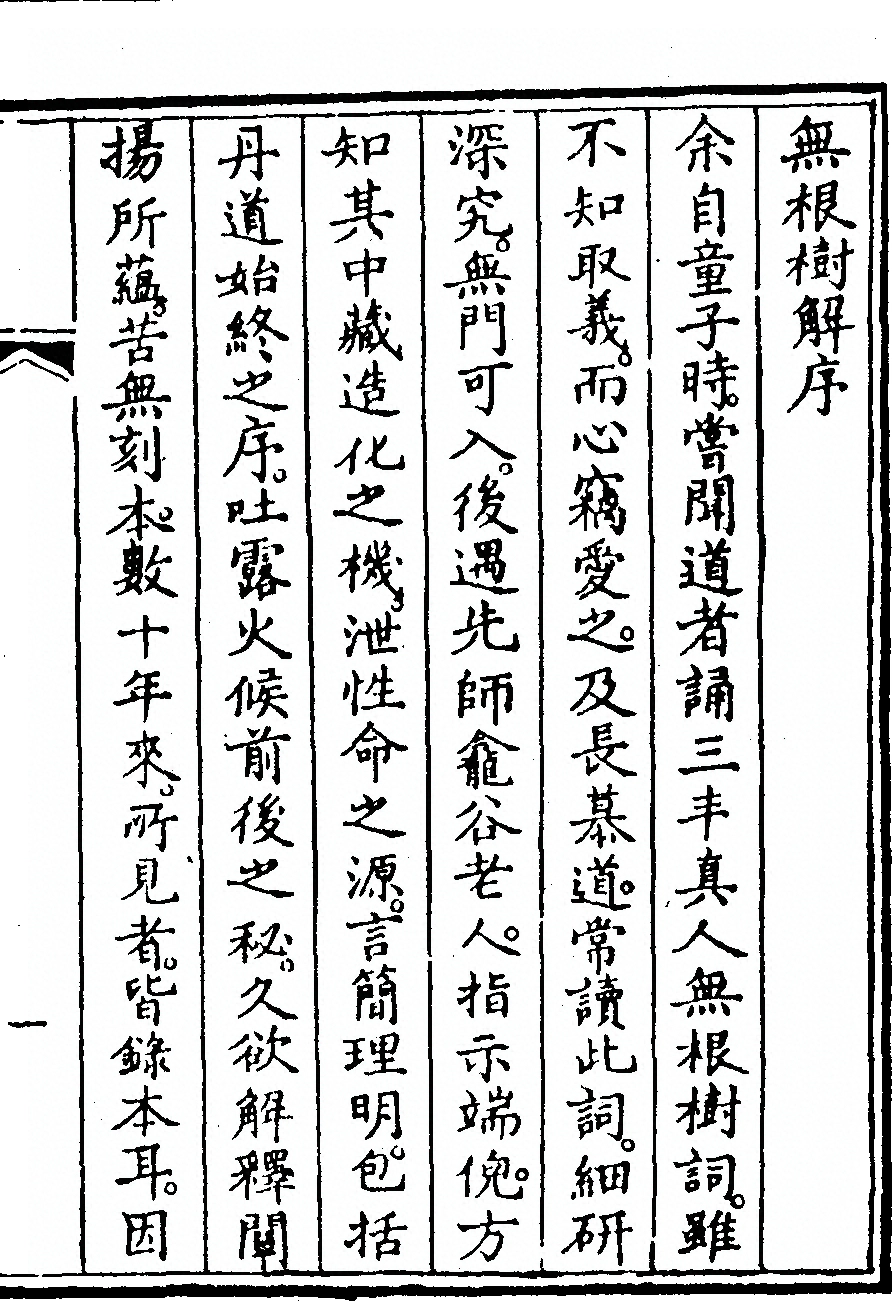 無根樹解序
余自童子時。嘗聞道者誦三丰真人無根樹詞。雖
不知取義。而心竊愛之。及長慕道。常讀此詞。細研
深究。無門可入。後遇先師龕谷老人。指示端倪。方
知其中藏造化之機。泄性命之源。言簡理明。包括
丹道始終之序。吐露火候前後之秘。久欲解釋闡
揚所蘊。苦無刻本。數十年來。所見者。皆錄本耳。因
一